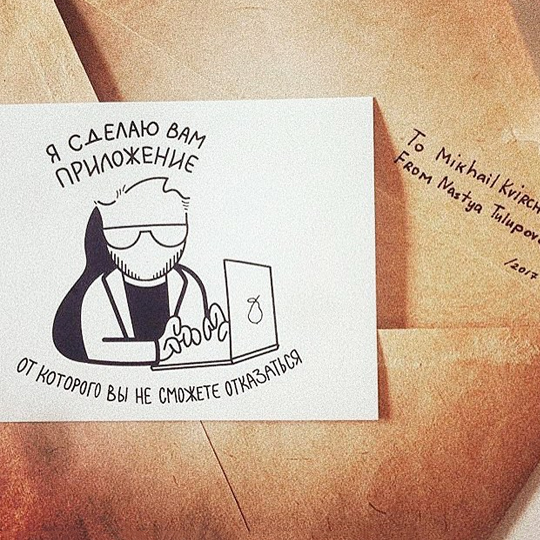 Я СДЕЛАЮ ВАМ
ПРИЛОЖЕНИЕ
ОТ КОТОРОГО ВЫ НЕ СМОЖЕТЕ ОТКАЗАТЬСЯ
To Mikhail
From Nastya Tulupov
/2017